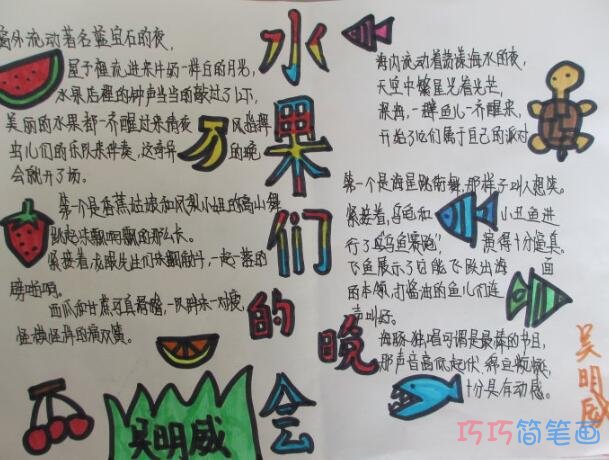 窗外流动着名蓝宝石的夜,
屋子里流进来牛奶一样白的月光,
水果店里的钟声当当的敲过了12下,
美丽的水果都一齐醒过来请夜
风指挥
虫儿们的乐队来伴奏,这奇异
的晚
会就开了场。
第一个是香蕉姑娘和凤梨小姐的高山舞
跳起来飘啊飘的那么长。
紧接着龙眼先生们来翻筋斗,一起一落的
劈啪响。
西瓜和甘蔗可真滑稽,一队胖来一对瘦,
怪模怪样的演双簧。
水果们的晚会
海内流动着
海水的夜,
天空中繁星
光芒,
深海,一群鱼儿一齐醒来,
开始了它们属于自己的派对
第一个是海星跳街舞,那样子叫人想笑。
紧接着,乌龟和
小丑鱼进
行了"龟鱼赛跑"
演得十分逼真。
飞鱼展示了它能飞跃出海
面
的本领,打酱油的鱼儿们连
声叫好。
海豚独唱可谓是最棒的节目,
那声音高低起伏
十分具有动感。
吴明威
吴明威
巧巧简笔画